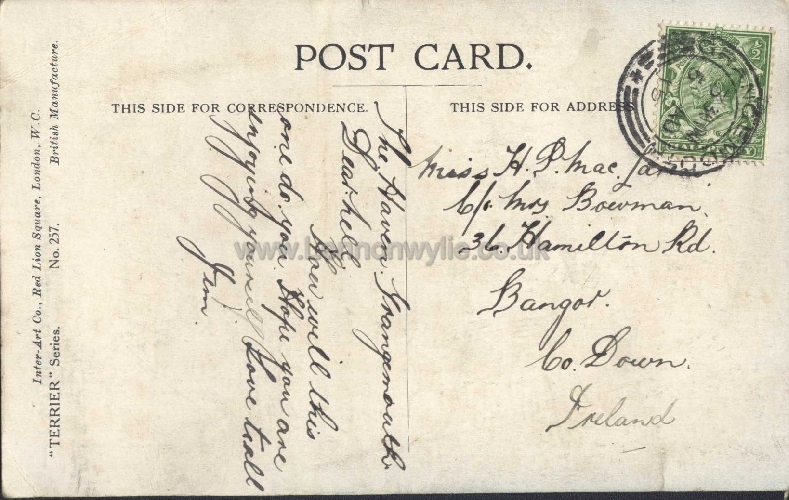 POST CARD.
THIS SIDE FOR CORRESPONDENCE.
THIS SIDE FOR ADDRESS
The Haven Grangemouth
Dear Nell
How will this
one do you. Hope you are
enjoying yourself Love to all
Jim.
Miss H. P. Mac
C/o Mrs Bowman.
36. Hamilton Rd.
Bangor.
Co. Down.
Ireland
Inter-Art Co., Red Lion Square, London, W.C.
British Manufacture.
"TERRIER" Series.
No. 257.
www.bennonwylie.co.uk